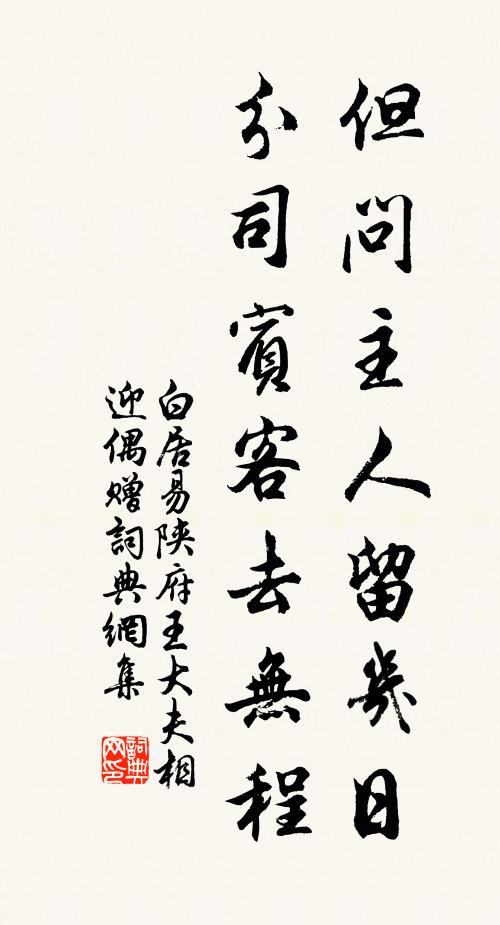 但問主人留幾日
分司賓客去無程
白居易陝府王大夫相
迎偶贈詞典網集
詞典
网印